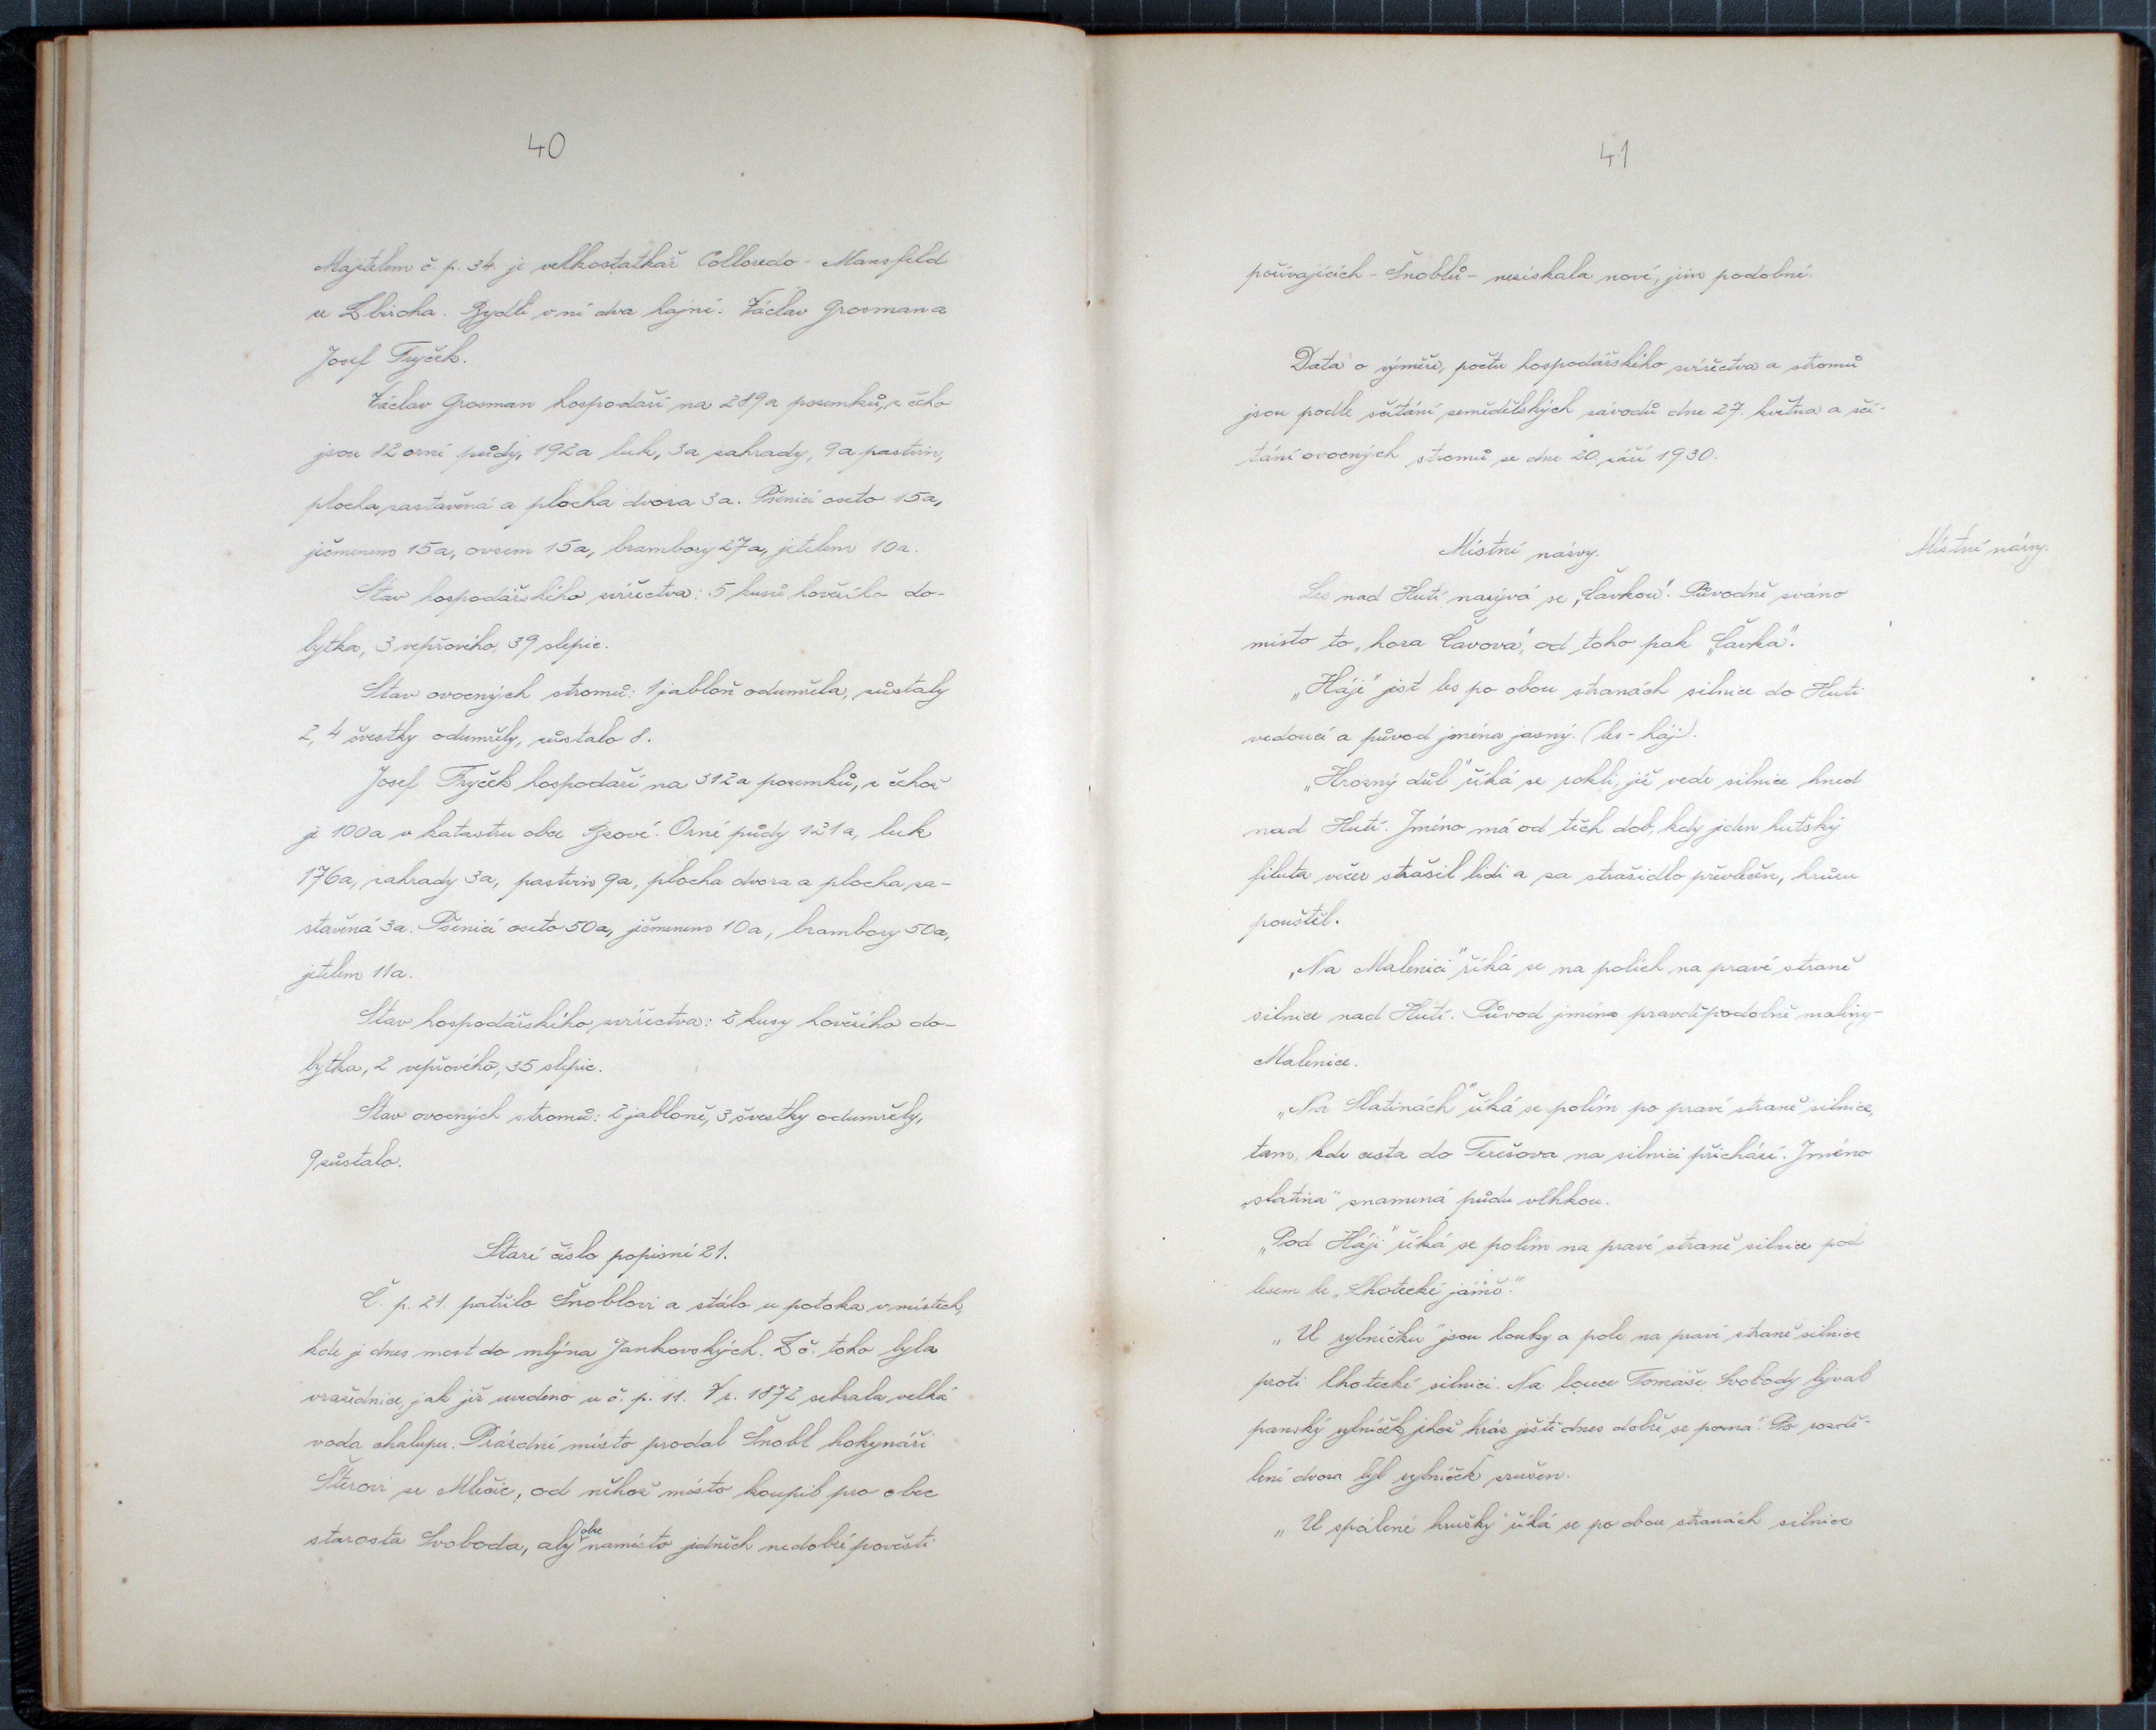 40
Majitelem č. p. 34. je velkostatkář Colloredo - Mansfeld
ze Zbiroha. Bydlí v ní dva hajní: Václav Grosman a
Josef Fryček.
Václav Grosman hospodaří na 289a pozemků, z čeho
jsou 82 orní půdy, 192a luk, 3a zahrady, 9a pastvin,
plocha zastavěná a plocha dvora 3a. Pšenicí oseto 15a,
ječmenem 15a, ovsem 15a, brambory 27a, jetelem 10a.
Stav hospodářského zvířectva: 5 kusů hovězího do-
bytka, 3 vepřového, 39 slepic.
Stav ovocných stromů: 1 jabloň odumřela, zůstaly
2, 4 švestky odumřely, zůstalo 8.
Josef Fryček hospodaří na 312a pozemků, z čehož
je 100a v katastru obce Bzové. Orné půdy 121a, luk
176a, zahrady 3a, pastvin 9a, plocha dvora a plocha za-
stavěná 3a. Pšenicí oseto 50a, ječmenem 10a, brambory 50a,
jetelem 11a.
Stav hospodářského zvířectva: 2 kusy hovězího do-
bytka, 2 vepřového, 35 slepic.
Stav ovocných stromů: 2 jabloně, 3 švestky odumřely,
9 zůstalo.
Staré číslo popisné 21.
Č. p. 21. patřilo Šnoblovi a stálo u potoka v místech,
kde je dnes most do mlýna Jankovských. Z č. toho byla
vražednice, jak již uvedeno u č. p. 11. V r. 1872 sebrala velká
voda chalupu. Prázdné místo prodal Šnobl hokynáři
Šterovi ze Mlečic, od něhož místo koupil pro obec
starosta Svoboda, aby obec namísto jedněch nedobré pověsti
41
požívajících - Šnoblů - nezískala nové, jim podobné.
Data o výměře, počtu hospodářského zvířectva a stromů
jsou podle sčítání zemědělských závodů dne 27. května a sčí-
tání ovocných stromů ze dne 20. září 1930.
Místní názvy.
Místní názvy.
Les nad Hutí nazývá se „Čavkou". Původně zváno
místo to „hora Čavova", od toho pak „Čavka".
„Háje" jest les po obou stranách silnice do Hutí
vedoucí a původ jména jasný. (les - háj).
„Hrozný důl" říká se rokli, jíž vede silnice hned
nad Hutí. Jméno má od těch dob, kdy jeden hutský
filuta večer strašil lidi a za strašidlo převlečen, hrůzu
pouštěl.
„Na Malenici" říká se na polích na pravé straně
silnice nad Hutí. Původ jména pravděpodobně maliny-
Malenice.
„Na Slatinách" říká se polím po pravé straně silnice,
tam, kde cesta do Terešova na silnici přichází. Jméno
„slatina" znamená půdu vlhkou.
„Pod Háji" říká se polím na pravé straně silnice pod
lesem ke „Lhotecké jámě."
„U rybníčku" jsou louky a pole na pravé straně silnice
proti lhotecké silnici. Na louce Tomáše Svobody býval
panský rybníček, jehož hráz ještě dnes dobře se pozná. Po rozdě-
lení dvora byl rybníček zrušen.
„U spálené hrušky" říká se po obou stranách silnice